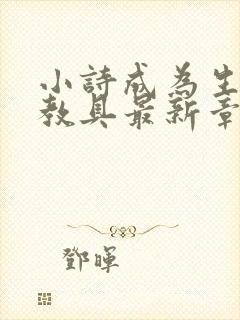 小詩成為生
教具最新章
鄧暉